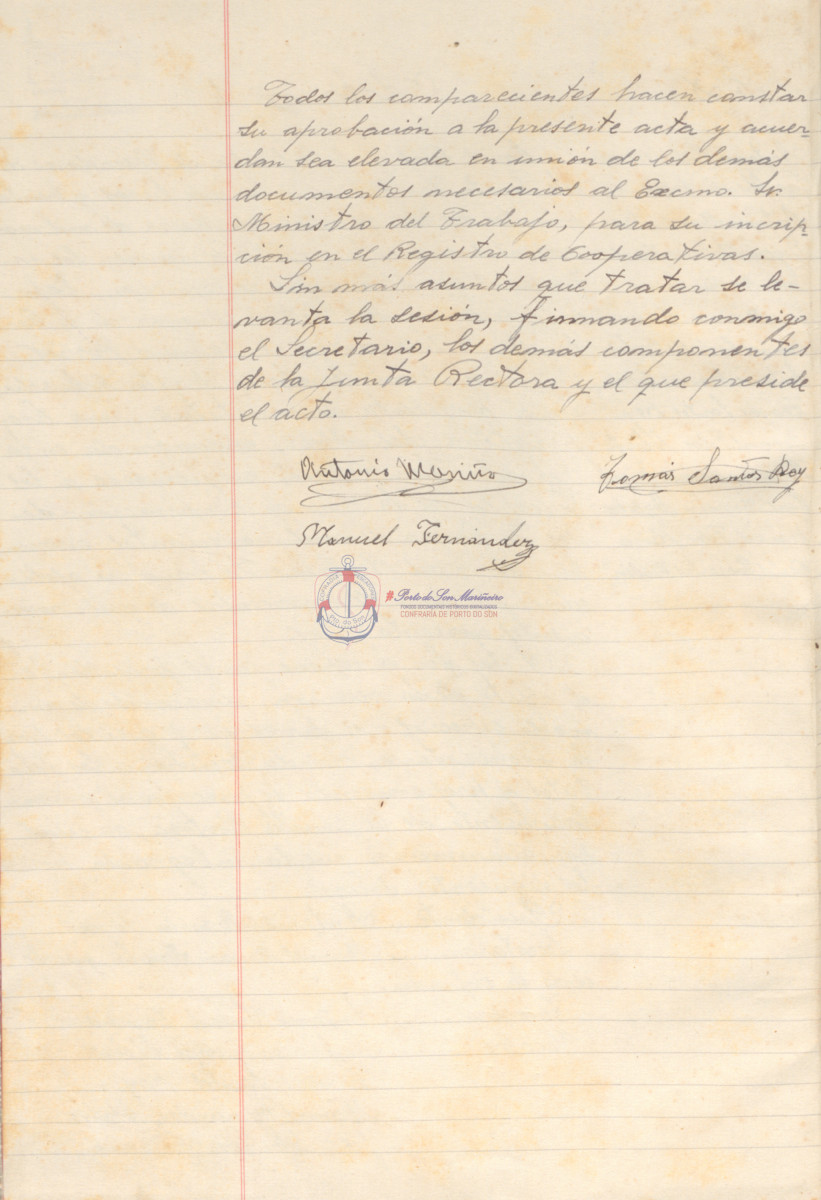 Todos los comparecientes hacen constar
su aprobación a la presente acta y acuer-
dan sea elevada en unión de los demás
documentos necesarios al Excmo. Sr.
Ministro del Trabajo, para su incrip-
ción en el Registro de Cooperativas.
Sin más asuntos que tratar se le-
vanta la sesión, firmando conmigo
el Secretario, los demás componentes
de la Junta Rectora y el que preside
el acto.
Antonio Mariño
Tomás Santos Rey
Manuel Fernández
#Porto do Son Mariñeiro
FONDOS DOCUMENTAIS HISTÓRICOS DIXITALIZADOS
CONFRARÍA DE PORTO DO SON
Pto. do Son